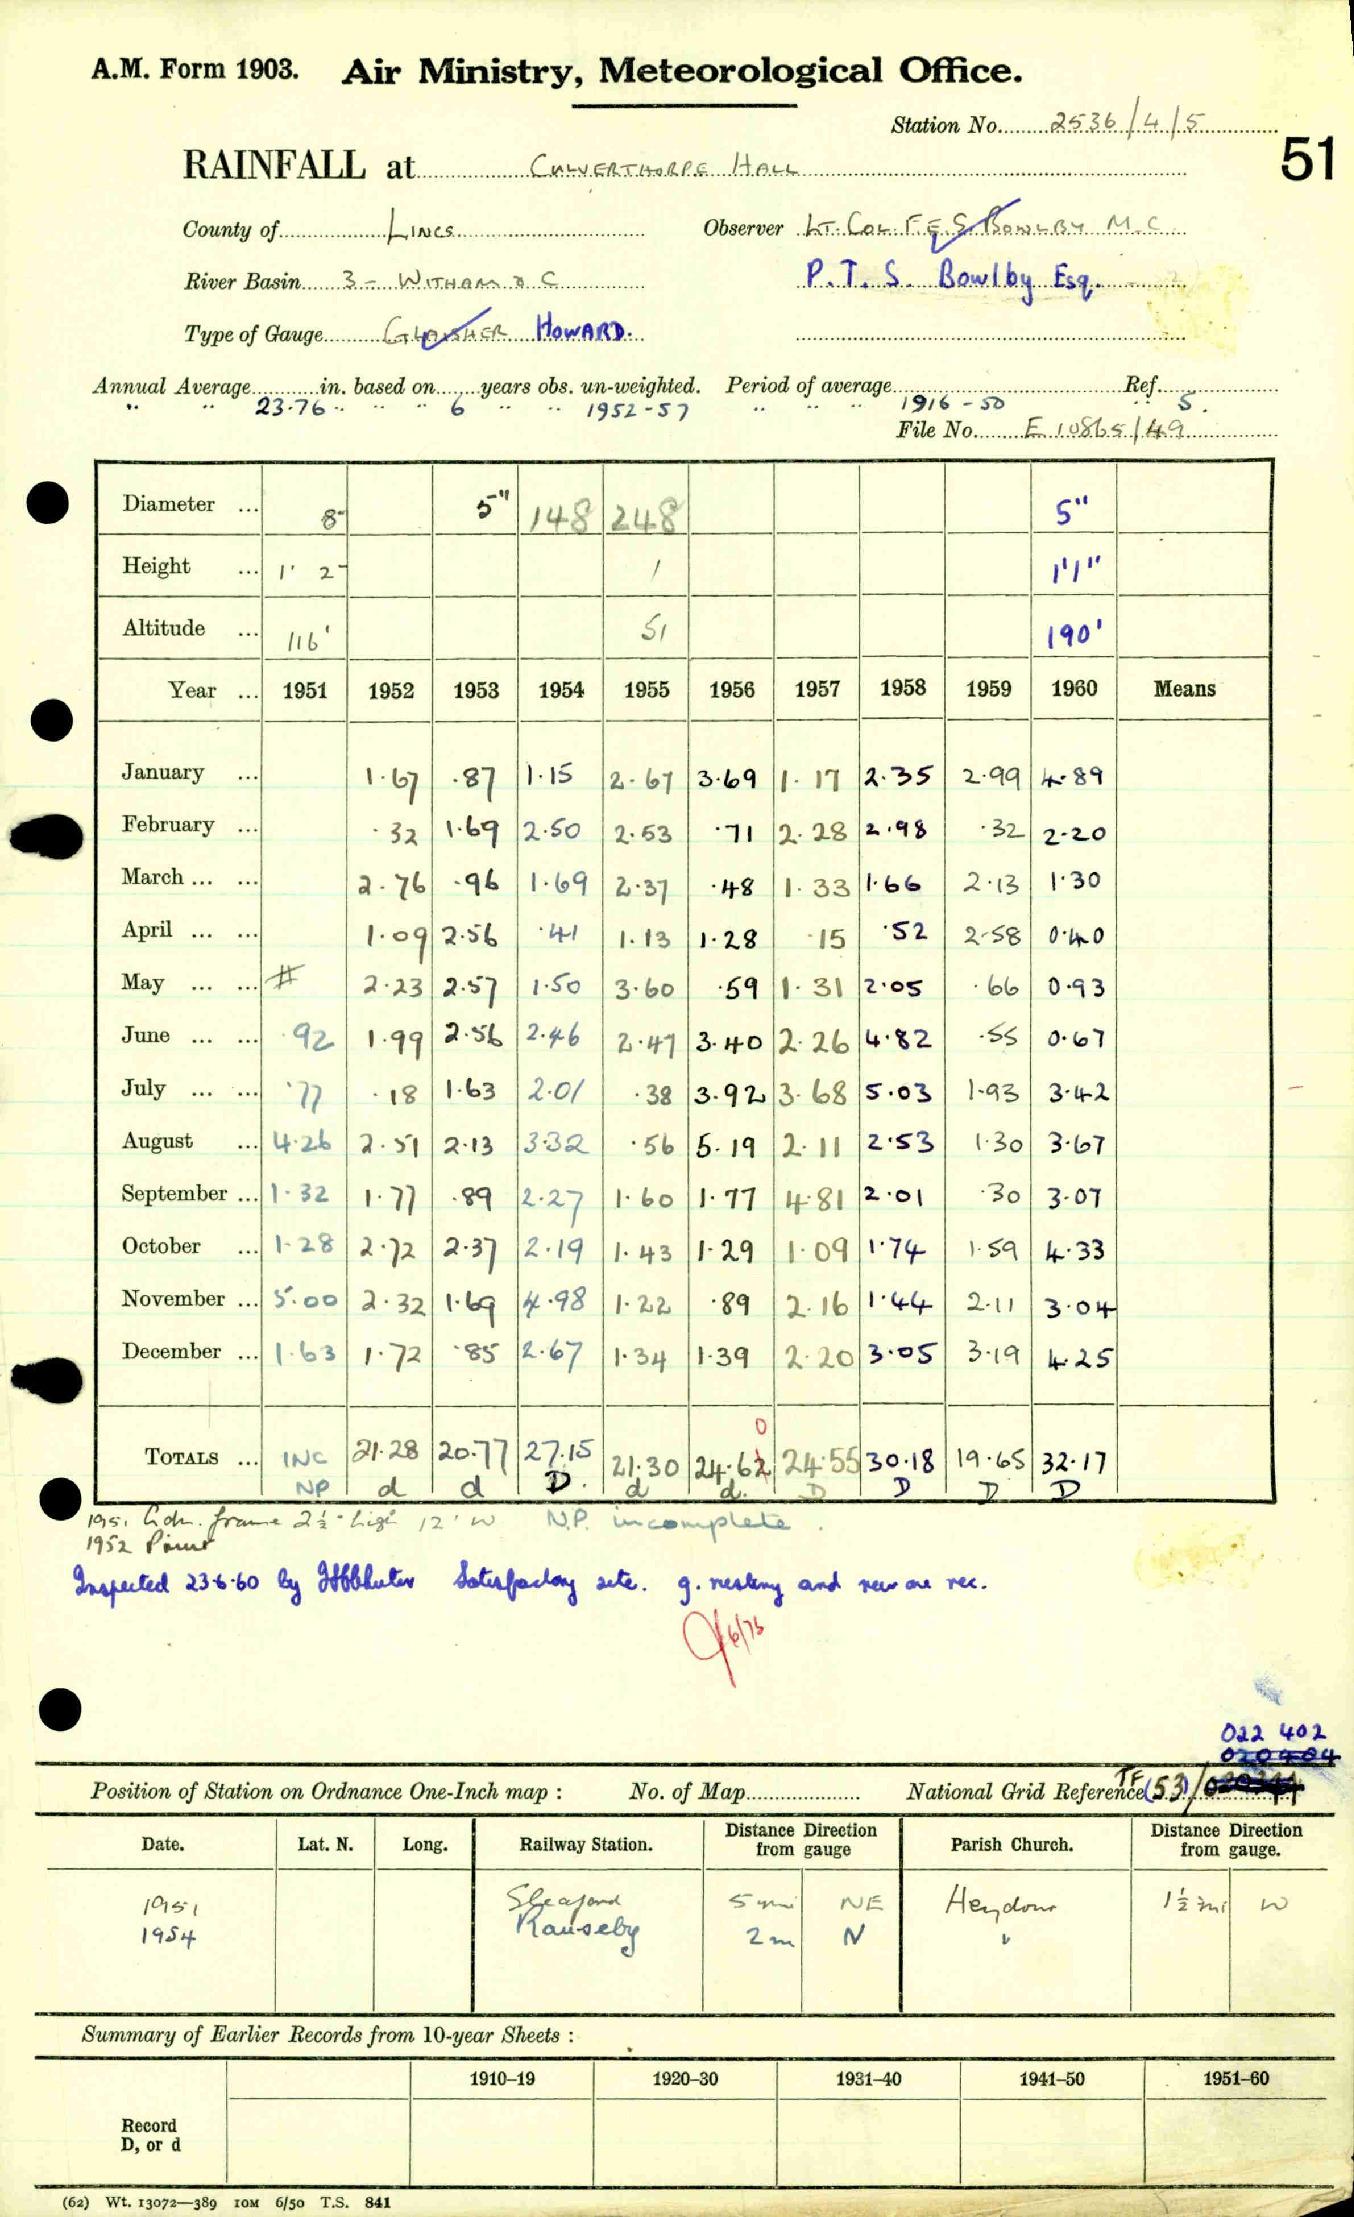 A.M. Form 1903. Air Ministry, Meteorological Office.
Station No. 2536/4/5
51
RAINFALL at CULVERTHORPE HALL
County of LINCS Observer LT. COL. F.E.S. BOWLBY M.C.
River Basin 3 - WITHAM & C P.T.S. Bowlby Esq.
Type of Gauge GLAISHER HOWARD.
Annual Average in. based on years obs. un-weighted. Period of average Ref.
" " 23.76 " " " 6 " " 1952-57 " " " 1916-50 " S.
File No. E 10865/49
Diameter ... 8" 5" 148 248 5"
Height ... 1' 2" 1 1'1"
Altitude ... 116' 51 190'
Year ... 1951 1952 1953 1954 1955 1956 1957 1958 1959 1960 Means
January ... 1.67 .87 1.15 2.67 3.69 1.17 2.35 2.99 4.89
February ... .32 1.69 2.50 2.53 .71 2.28 2.98 .32 2.20
March ... ... 2.76 .96 1.69 2.37 .48 1.33 1.66 2.13 1.30
April ... ... 1.09 2.56 .41 1.13 1.28 .15 .52 2.58 0.40
May ... ... # 2.23 2.57 1.50 3.60 .59 1.31 2.05 .66 0.93
June ... ... .92 1.99 2.56 2.46 2.47 3.40 2.26 4.82 .55 0.67
July ... ... .77 .18 1.63 2.01 .38 3.92 3.68 5.03 1.93 3.42
August ... 4.26 2.51 2.13 3.32 .56 5.19 2.11 2.53 1.30 3.67
September ... 1.32 1.77 .89 2.27 1.60 1.77 4.81 2.01 .30 3.07
October ... 1.28 2.72 2.37 2.19 1.43 1.29 1.09 1.74 1.59 4.33
November ... 5.00 2.32 1.69 4.98 1.22 .89 2.16 1.44 2.11 3.04
December ... 1.63 1.72 .85 2.67 1.34 1.39 2.20 3.05 3.19 4.25
0
TOTALS ... INC 21.28 20.77 27.15 21.30 24.62 24.55 30.18 19.65 32.17
NP d d D. d d. D D D D
1951 frame 2½" high 12' W N.P. incomplete.
1952
Inspected 23.6.60 by Satisfactory site. g. and new one rec.
6/75
022 402
020404
Position of Station on Ordnance One-Inch map : No. of Map National Grid Reference TF (53)/
Date. Lat. N. Long. Railway Station. Distance Direction from gauge Parish Church. Distance Direction from gauge.
1951 Sleaford 5 mi NE Heydour 1½ mi W
1954 Rauseby 2 m N "
Summary of Earlier Records from 10-year Sheets :
1910–19 1920–30 1931–40 1941–50 1951–60
Record
D, or d
(62) Wt. 13072—389 10M 6/50 T.S. 841